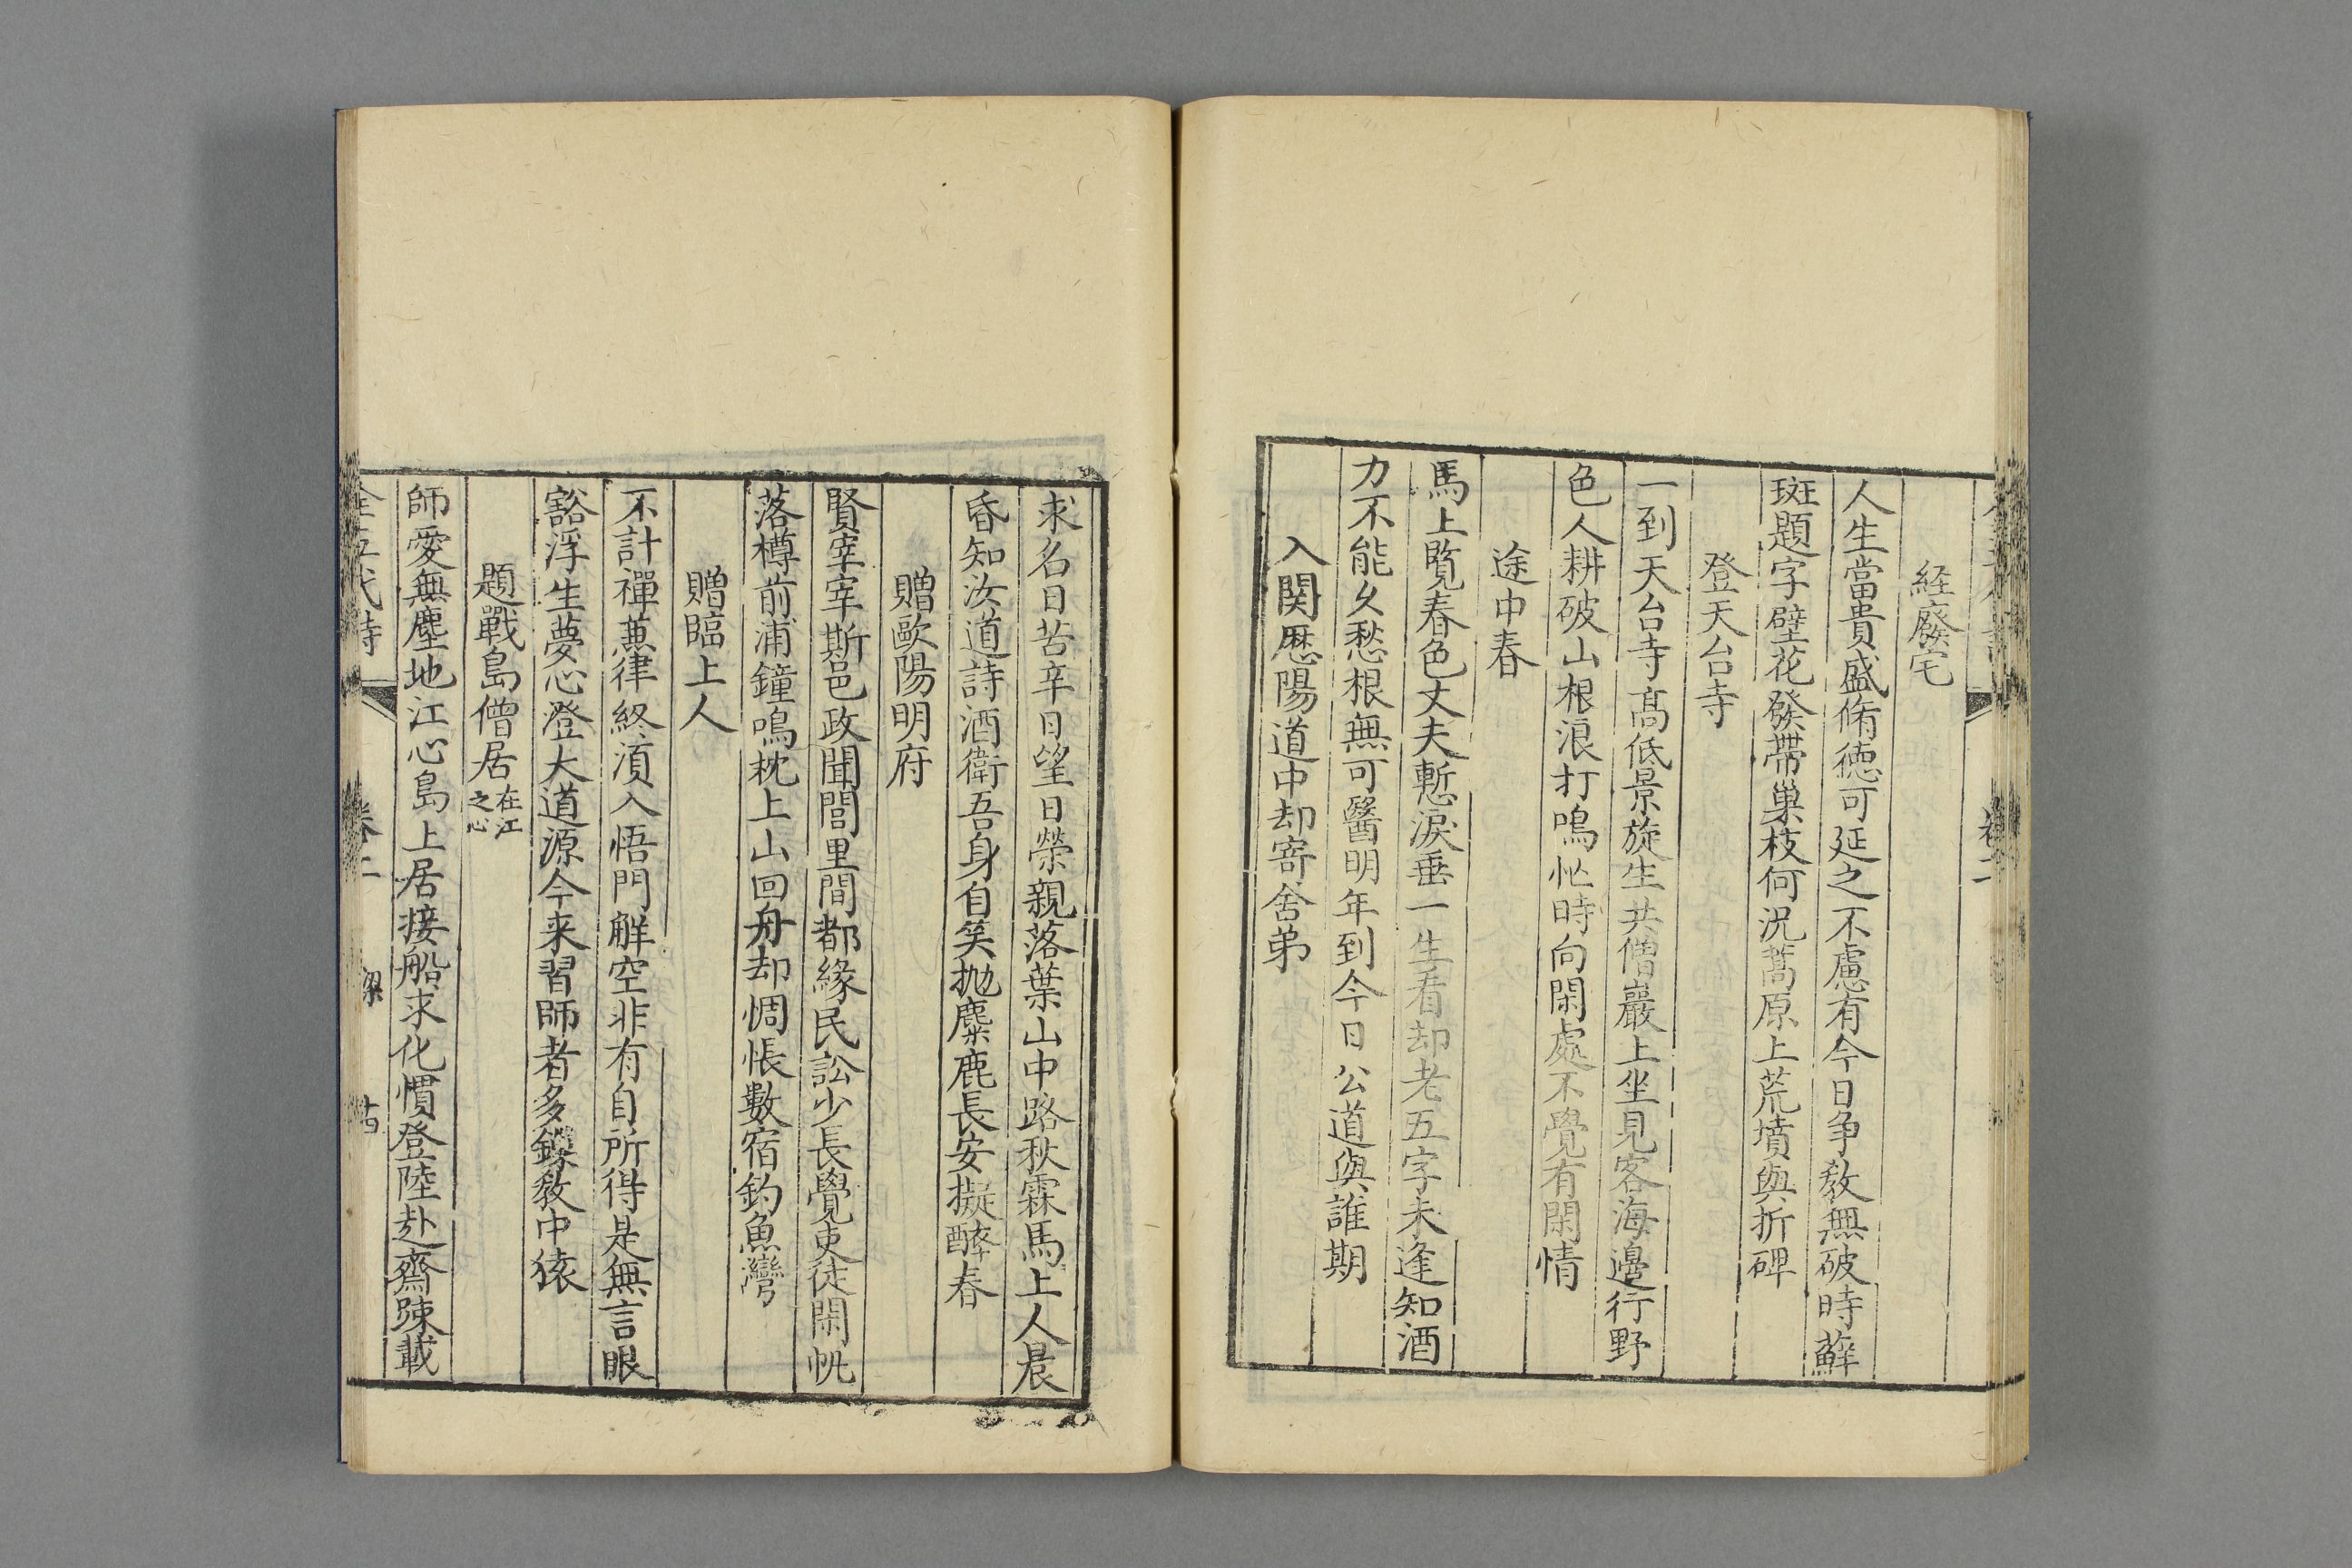 経廢宅
人生當貴盛脩德可延之不慮有今日争教無破時蘚
斑題字壁花發帶巢枝何況蒿原上荒墳與折碑
登天台寺
一到天台寺高低景旋生共僧巖上坐見客海邊行野
色人耕破山根浪打鳴忙時向閑處不覺有閑情
途中春
馬上覧春色丈夫慙淚垂一生看却老五字未逢知酒
力不能久愁根無可醫明年到今日公道與誰期
入関歴陽道中却寄舍弟
卷二
求名日苦辛日望日榮親落葉山中路秋霖馬上人晨
昏知汝道詩酒衛吾身自笑抛麋鹿長安擬醉春
贈歐陽明府
賢宰宰斯邑政聞閭里間都緣民訟少長覺吏徒閑帆
落樽前浦鐘鳴枕上山回舟却惆悵數宿釣魚灣
贈臨上人
不計禪兼律終須入悟門解空非有自所得是無言眼
豁浮生夢心澄大道源今来習師者多鏁教中猿
題戰島僧居在江之心
師愛無塵地江心島上居接船求化慣登陸赴齋踈載
全五代詩
卷二
梁
十四